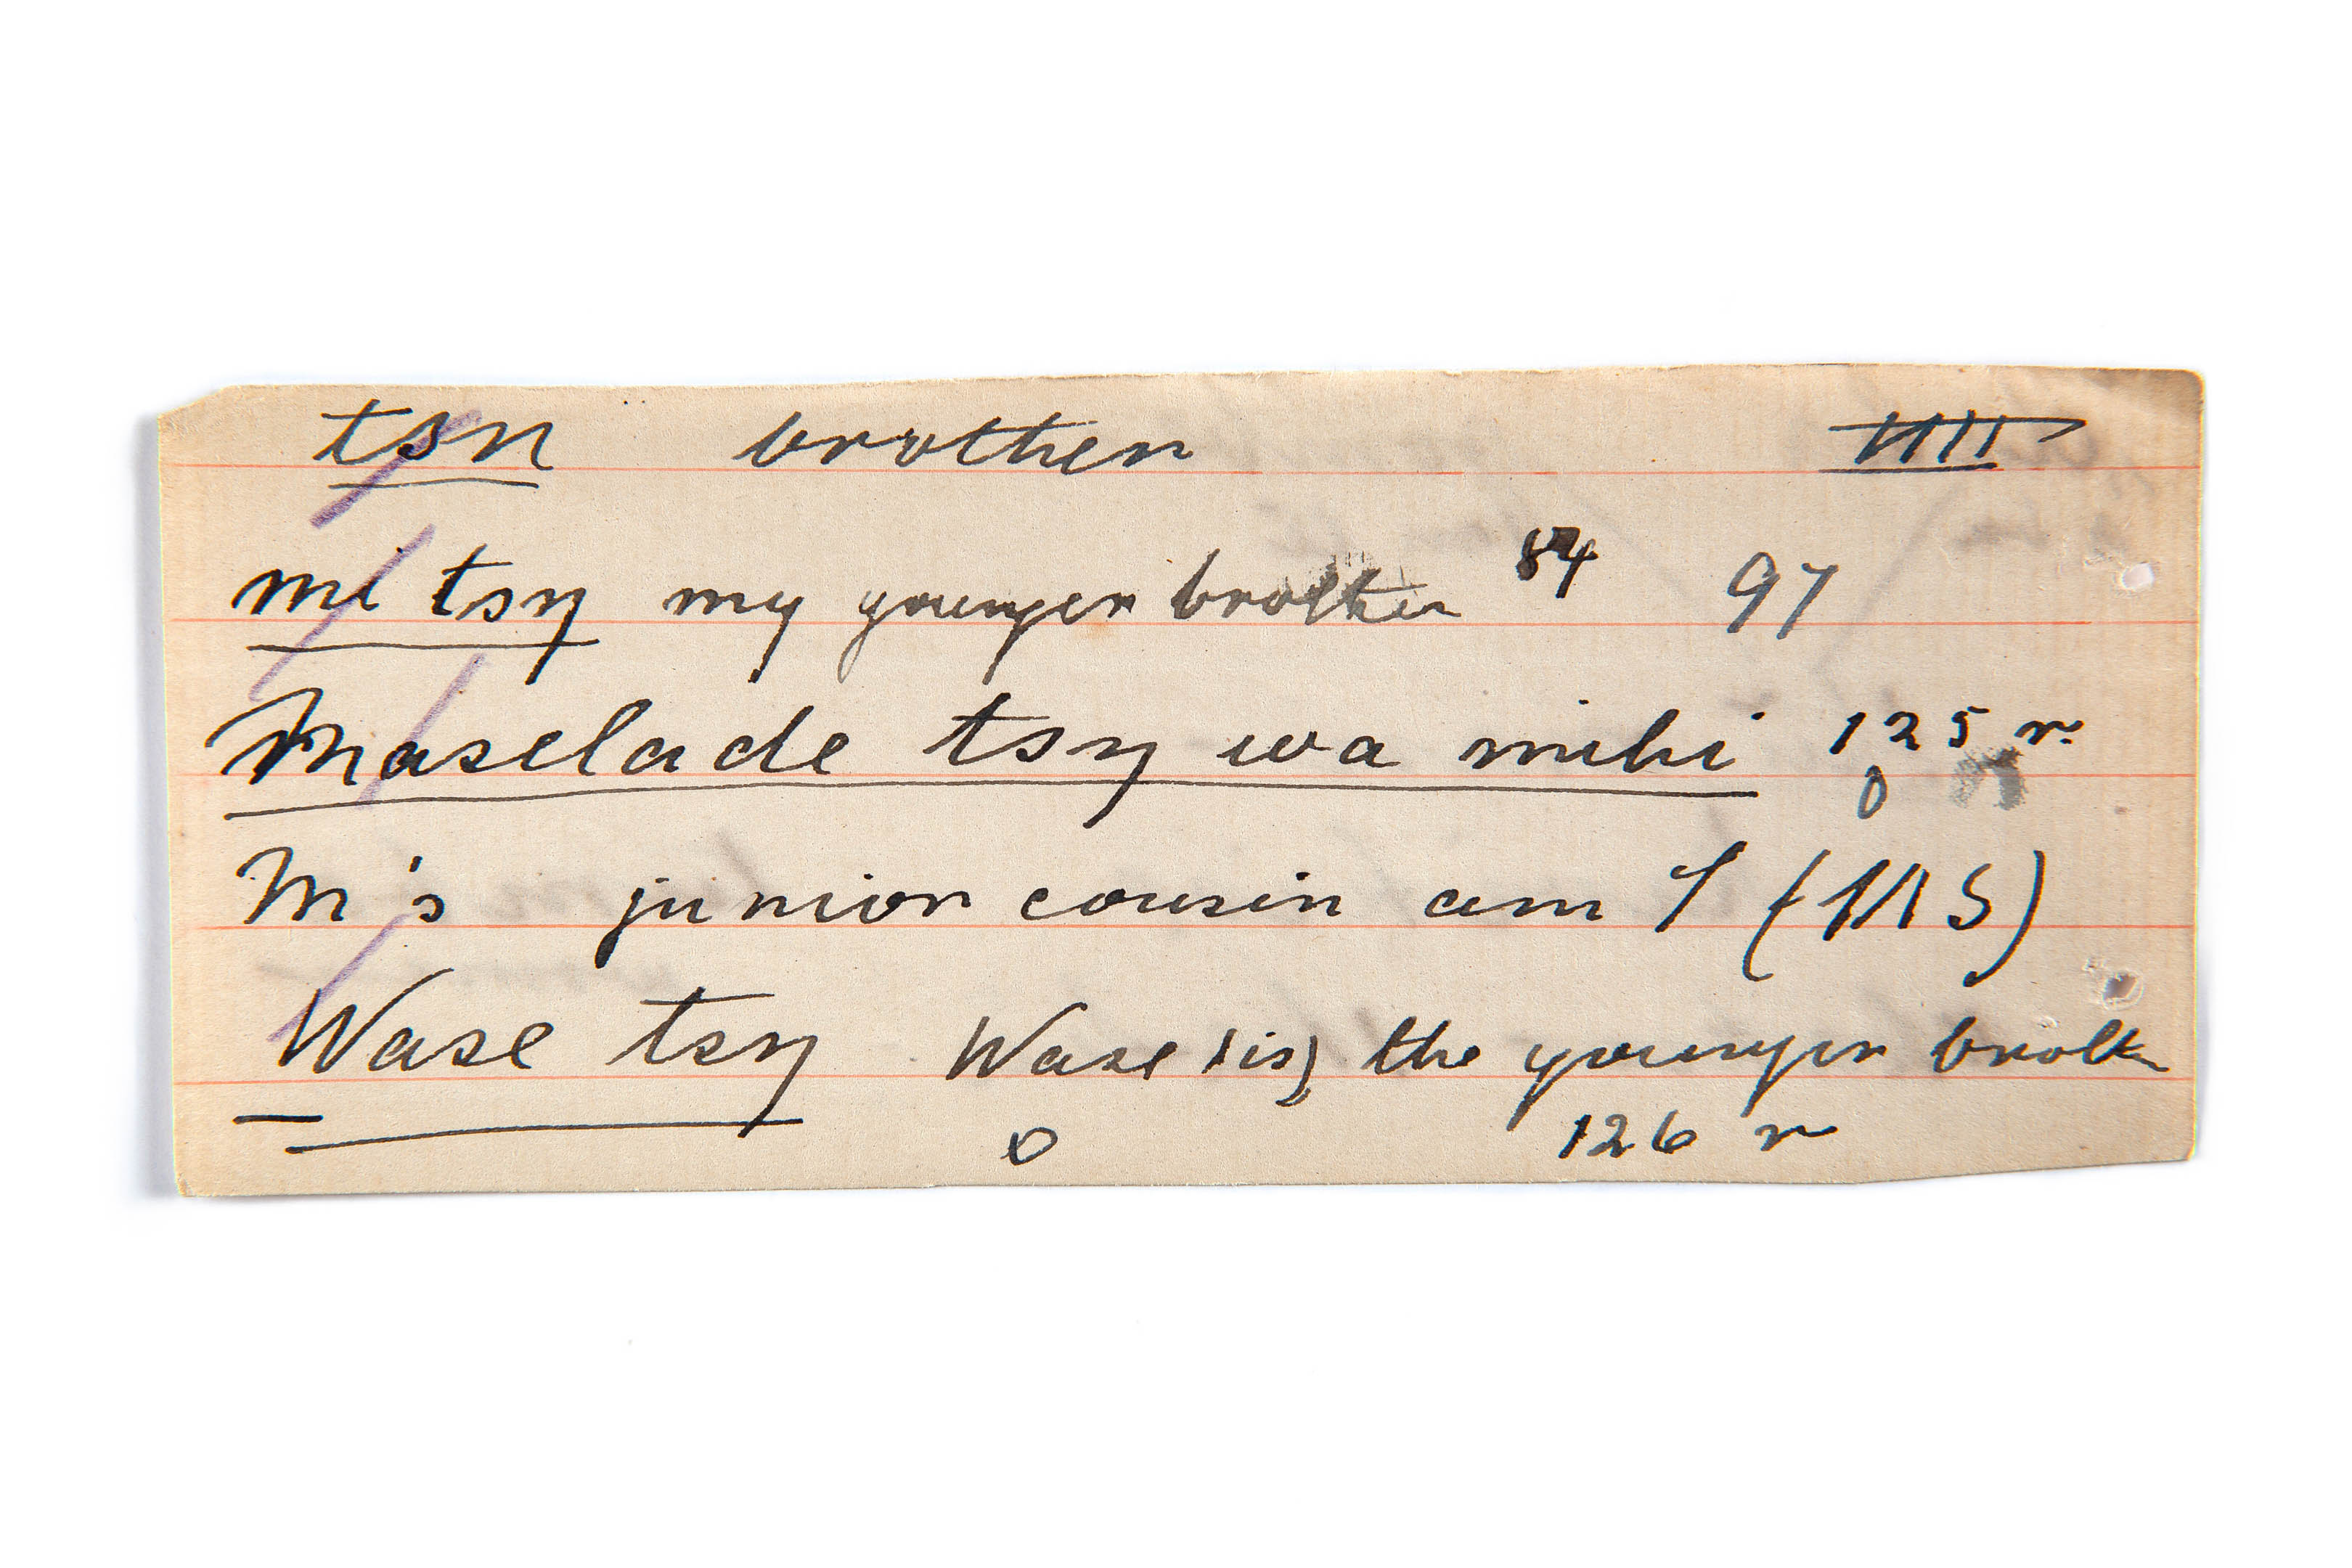 tsn brother
mi tsŋ my younger brother 84 97
Maselade tsŋ wa mihi 125 r.
0
M's junior cousin am I (MS)
Wase tsŋ Wase (is) the younger brother
0 126 r